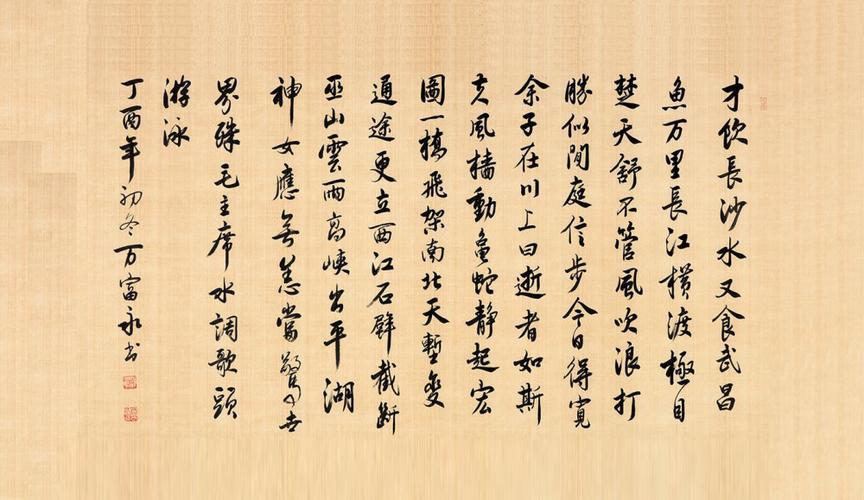 才飲長沙水又食武昌
魚万里長江橫渡極目
楚天舒不管風吹浪打
勝似閒庭信步今日得寬
余子在川上曰逝者如斯
夫風檣動龜蛇靜起宏
圖一橋飛架南北天塹變
通途更立西江石壁截斷
巫山雲雨高峽出平湖
神女應無恙當驚世
界殊毛主席水調歌頭
游泳
丁酉年初冬万富永书